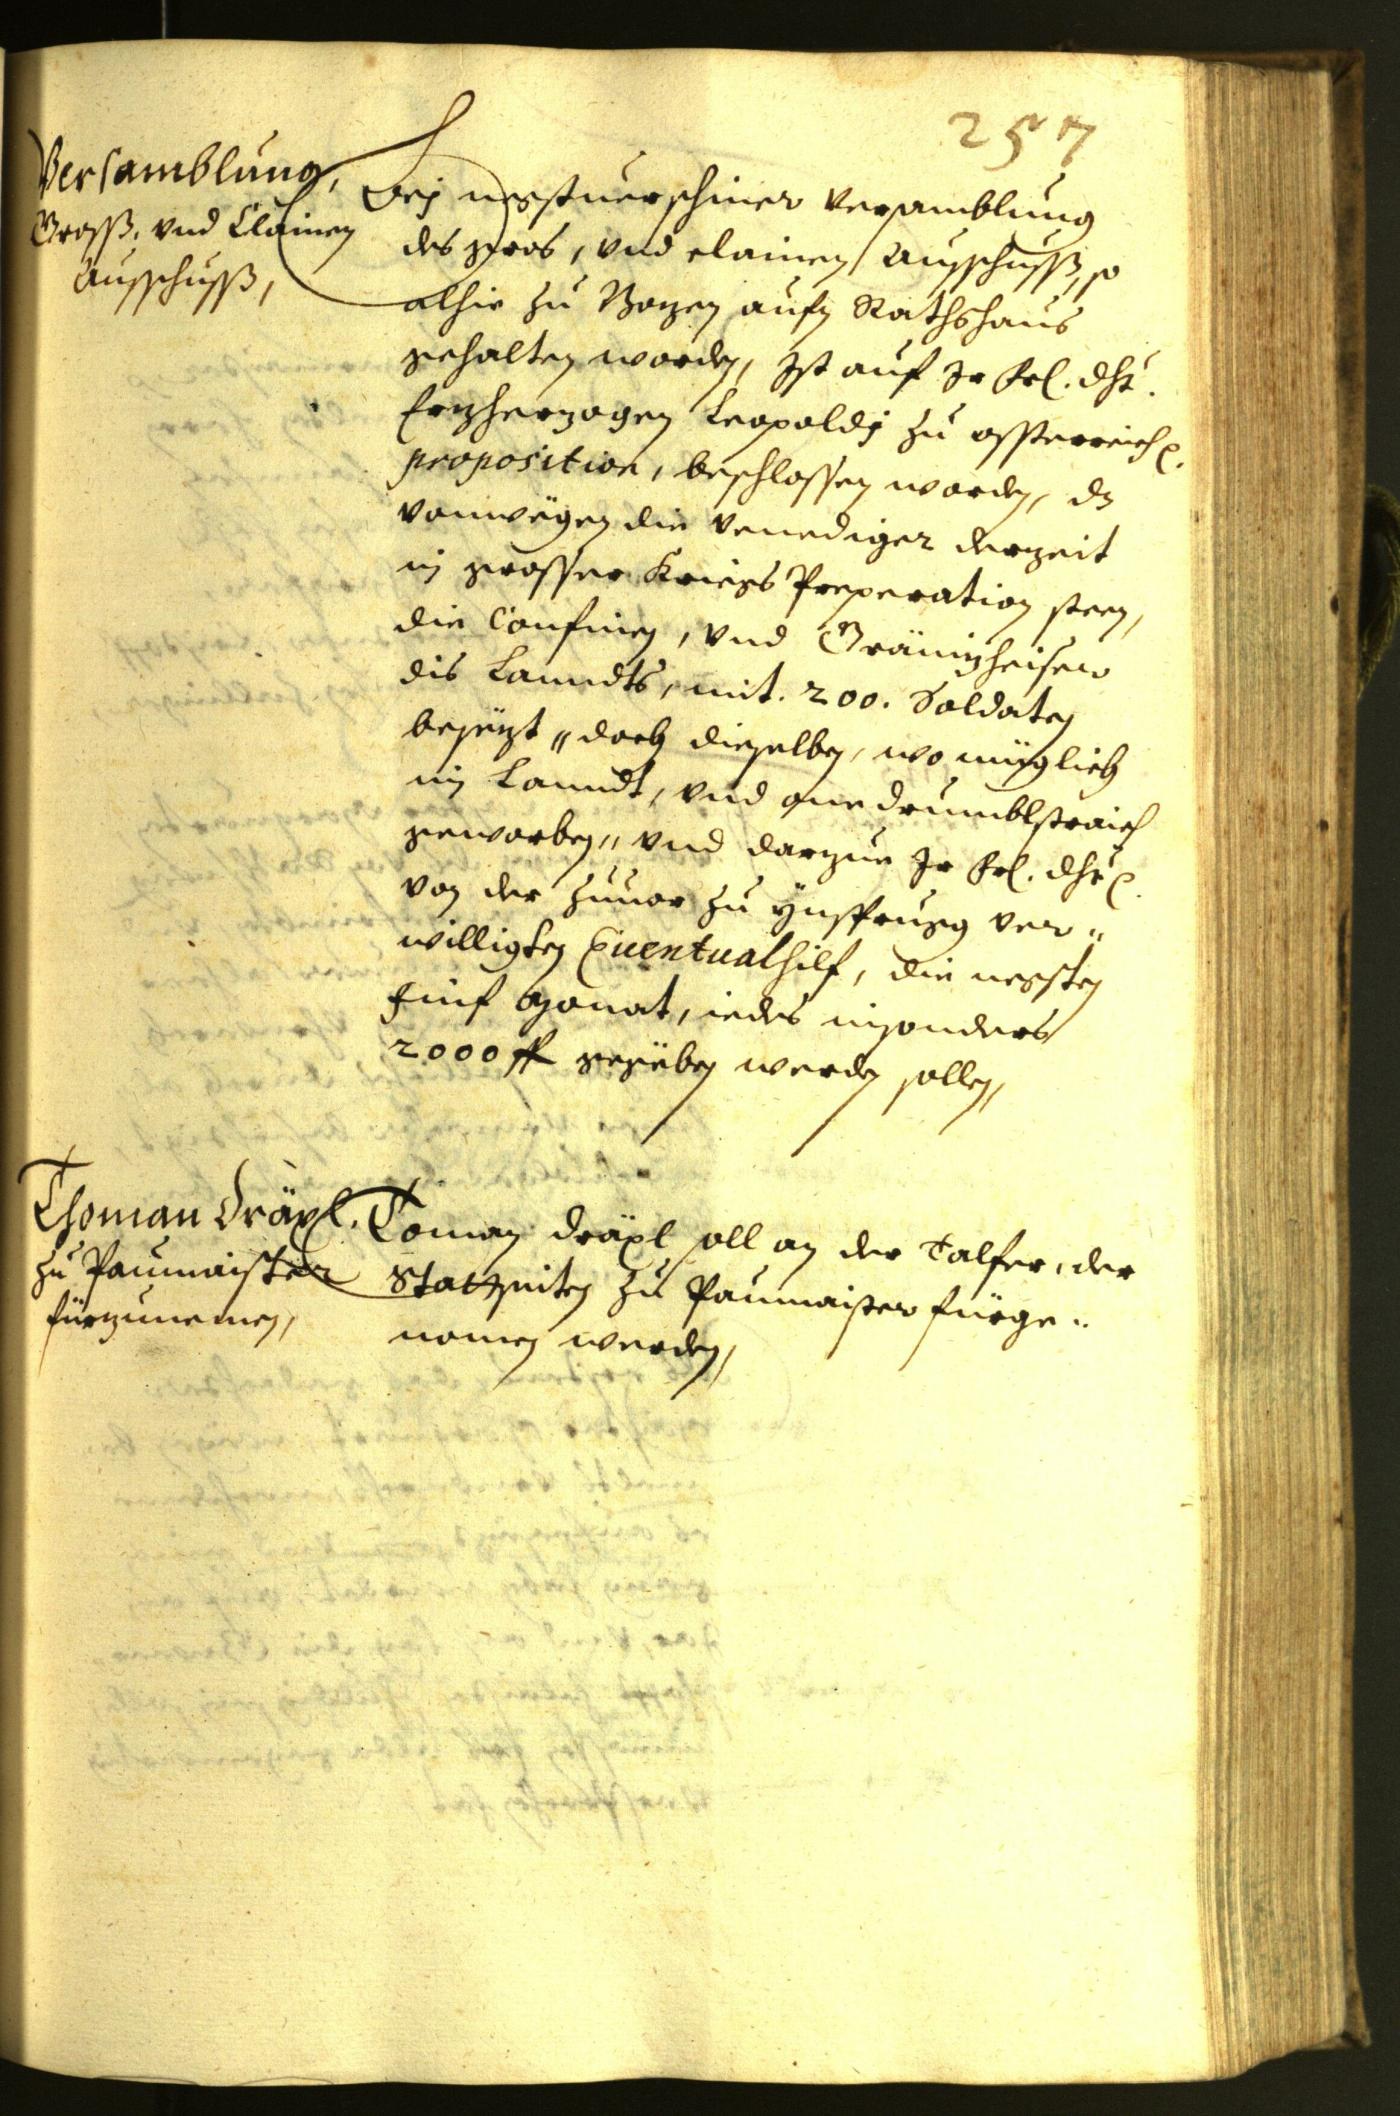 257
Versamblung,
Gross. vnd Clainen
Ausschuss,
Bej negstuerschiner versamblung
des gros, vnd clainen Ausschuss, so
alhie zu Bozen aufm Rathshaus
gehalten worden, Ist auf Ir Frl. dht.
Erzherzogen Leopoldj zu össterreich
proposition, beschlossen worden, dz
vonwegen die Venediger derzeit
in grosser Kriegs Preperation steen,
die Confinen, vnd Gränizheiser
dis Lanndts, mit. 200. Soldaten
besezt „ doch dieselben, wo müglich
im Lanndt, vnd one drumblstraich
geworben „ vnd darzue Ir Frl. dht
von der zuuor zu Ynsprugg ver„
willigten Euentualhilf, die negsten
Fünf Monat, iedes insonders
2000 fl gegeben werden sollen,
Thoman dräxl.
zu Paumaister
fürzunemen,
Toman dräxl soll an der Talfer, der
Statseiten zu Paumaister fürge„
nomen werden,